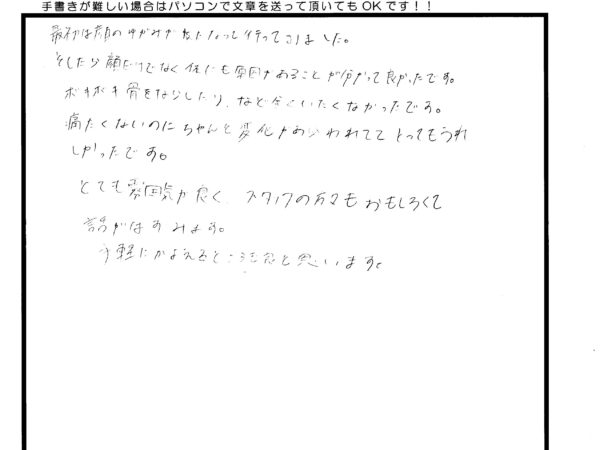 手書きが難しい場合はパソコンで文章を送って頂いてもOKです！！
最初は顔のゆがみが気になって行ってみました。
そしたら顔だけでなく体にも原因があることが分かって良かったです。
ボキボキ骨をならしたり、など全くいたくなかったです。
痛たくないのにちゃんと変化があらわれてて とってもうれ
しかったです。
とても雰囲気が良く、スタッフの方々もおもしろくて
話がはずみます。
手軽にかよえるところだと思います。